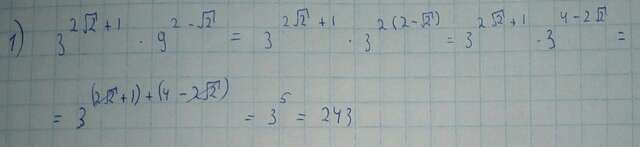 1) 3^{2√2+1} · 9^{2-√2} = 3^{2√2+1} · 3^{2(2-√2)} = 3^{2√2+1} · 3^{4-2√2} =
= 3^{(2√2+1)+(4-2√2)} = 3^5 = 243